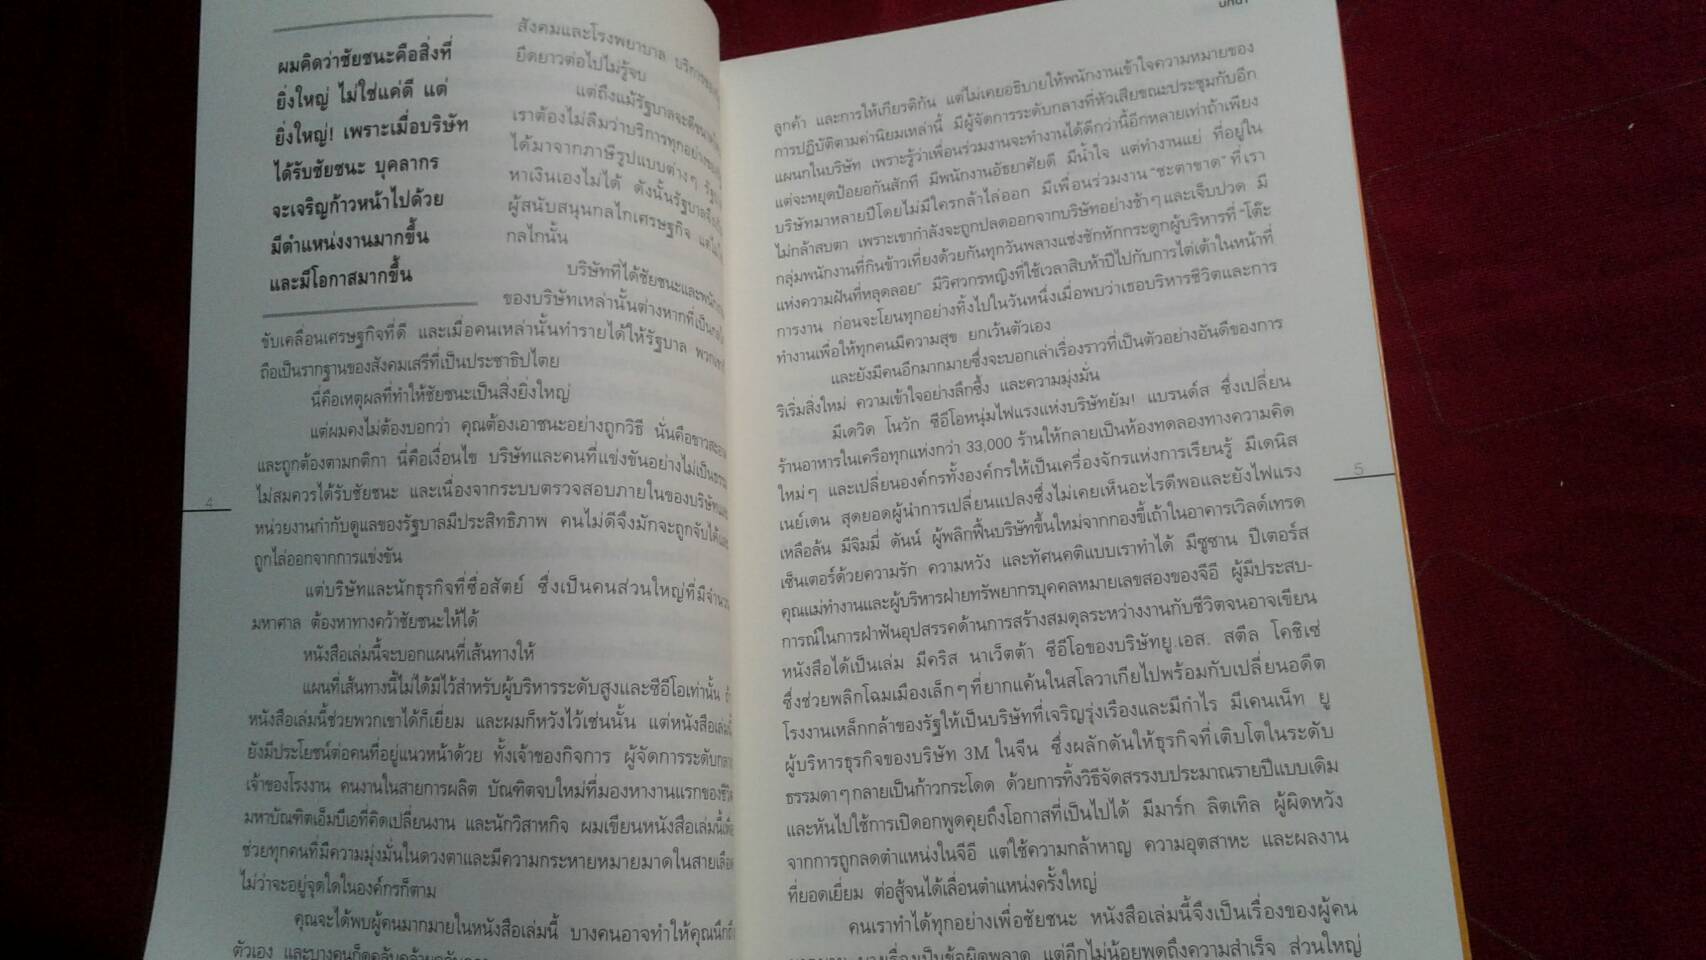 ผมคิดว่าชัยชนะคือสิ่งที่
ยิ่งใหญ่ ไม่ใช่แค่ดี แต่
ยิ่งใหญ่! เพราะเมื่อบริษัท
ได้รับชัยชนะ บุคลากร
จะเจริญก้าวหน้าไปด้วย
มีตำแหน่งงานมากขึ้น
และมีโอกาสมากขึ้น
สังคมและโรงพยาบาล
ยืดยาวต่อไปไม่รู้จบ
แต่ถึงแม้รัฐบาลจะ
เราต้องไม่ลืมว่าบริการทุกอย่าง
ได้มาจากภาษีรูปแบบต่างๆ
หาเงินเองไม่ได้ ดังนั้นรัฐบาล
ผู้สนับสนุนกลไกเศรษฐกิจ
กลไกนั้น
บริษัทที่ได้ชัยชนะและ
ของบริษัทเหล่านั้นต่างหากที่เป็น
ขับเคลื่อนเศรษฐกิจที่ดี และเมื่อคนเหล่านั้นทำรายได้ให้รัฐบาล
ถือเป็นรากฐานของสังคมเสรีที่เป็นประชาธิปไตย
นี่คือเหตุผลที่ทำให้ชัยชนะเป็นสิ่งยิ่งใหญ่
แต่ผมคงไม่ต้องบอกว่า คุณต้องเอาชนะอย่างถูกวิธี นั่นคือขาวสะอาด
และถูกต้องตามกติกา นี่คือเงื่อนไข บริษัทและคนที่แข่งขันอย่างไม่เป็นธรรม
ไม่สมควรได้รับชัยชนะ และเนื่องจากระบบตรวจสอบภายในของบริษัทและ
หน่วยงานกำกับดูแลของรัฐบาลมีประสิทธิภาพ คนไม่ดีจึงมักจะถูกจับได้และ
ถูกไล่ออกจากการแข่งขัน
แต่บริษัทและนักธุรกิจที่ซื่อสัตย์ ซึ่งเป็นคนส่วนใหญ่ที่มีจำนวน
มหาศาล ต้องหาทางคว้าชัยชนะให้ได้
หนังสือเล่มนี้จะบอกแผนที่เส้นทางให้
แผนที่เส้นทางนี้ไม่ได้มีไว้สำหรับผู้บริหารระดับสูงและซีอีโอเท่านั้น ถ้า
หนังสือเล่มนี้ช่วยพวกเขาได้ก็เยี่ยม และผมก็หวังไว้เช่นนั้น แต่หนังสือเล่มนี้
ยังมีประโยชน์ต่อคนที่อยู่แนวหน้าด้วย ทั้งเจ้าของกิจการ ผู้จัดการระดับกลาง
เจ้าของโรงงาน คนงานในสายการผลิต บัณฑิตจบใหม่ที่มองหางานแรกของชีวิต
มหาบัณฑิตเอ็มบีเอที่คิดเปลี่ยนงาน และนักวิสาหกิจ ผมเขียนหนังสือเล่มนี้เพื่อ
ช่วยทุกคนที่มีความมุ่งมั่นในดวงตาและมีความกระหายหมายมาดในสายเลือด
ไม่ว่าจะอยู่จุดใดในองค์กรก็ตาม
คุณจะได้พบผู้คนมากมายในหนังสือเล่มนี้ บางคนอาจทำให้คุณนึกถึง
ตัวเอง และบางคนก็ดูคลับคล้ายคลับคลา
4
บทนำ
ลูกค้า และการให้เกียรติกัน แต่ไม่เคยอธิบายให้พนักงานเข้าใจความหมายของ
การปฏิบัติตามค่านิยมเหล่านี้ มีผู้จัดการระดับกลางที่หัวเสียขณะประชุมกับอีก
แผนกในบริษัท เพราะรู้ว่าเพื่อนร่วมงานจะทำงานได้ดีกว่านี้อีกหลายเท่าถ้าเพียง
แต่จะหยุดป้อยอกันสักที มีพนักงานอัธยาศัยดี มีน้ำใจ แต่ทำงานแย่ ที่อยู่ใน
บริษัทมาหลายปีโดยไม่มีใครกล้าไล่ออก มีเพื่อนร่วมงาน "ชะตาขาด" ที่เรา
ไม่กล้าสบตา เพราะเขากำลังจะถูกปลดออกจากบริษัทอย่างช้าๆ และเจ็บปวด มี
กลุ่มพนักงานที่กินข้าวเที่ยงด้วยกันทุกวันพลางแช่งชักหักกระดูกผู้บริหารที่ "โต๊ะ
แห่งความฝันที่หลุดลอย" มีวิศวกรหญิงที่ใช้เวลาสิบห้าปีไปกับการไต่เต้าในหน้าที่
การงาน ก่อนจะโยนทุกอย่างทิ้งไปในวันหนึ่งเมื่อพบว่าเธอบริหารชีวิตและการ
ทำงานเพื่อให้ทุกคนมีความสุข ยกเว้นตัวเอง
และยังมีคนอีกมากมายซึ่งจะบอกเล่าเรื่องราวที่เป็นตัวอย่างอันดีของการ
ริเริ่มสิ่งใหม่ ความเข้าใจอย่างลึกซึ้ง และความมุ่งมั่น
มีเดวิด โนวัก ซีอีโอหนุ่มไฟแรงแห่งบริษัทยัม! แบรนด์ส ซึ่งเปลี่ยน
ร้านอาหารในเครือทุกแห่งกว่า 33,000 ร้านให้กลายเป็นห้องทดลองทางความคิด
ใหม่ๆ และเปลี่ยนองค์กรทั้งองค์กรให้เป็นเครื่องจักรแห่งการเรียนรู้ มีเดนิส
เนย์เดน สุดยอดผู้นำการเปลี่ยนแปลงซึ่งไม่เคยเห็นอะไรดีพอและยังไฟแรง
เหลือล้น มีจิมมี่ ดันน์ ผู้พลิกฟื้นบริษัทขึ้นใหม่จากกองขี้เถ้าในอาคารเวิลด์เทรด
เซ็นเตอร์ด้วยความรัก ความหวัง และทัศนคติแบบเราทำได้ มีซูซาน ปีเตอร์ส
คุณแม่ทำงานและผู้บริหารฝ่ายทรัพยากรบุคคลหมายเลขสองของจีอี ผู้มีประสบ-
การณ์ในการฝ่าฟันอุปสรรคด้านการสร้างสมดุลระหว่างงานกับชีวิตจนอาจเขียน
หนังสือได้เป็นเล่ม มีคริส นาเว็ตต้า ซีอีโอของบริษัทยู.เอส. สตีล โคชิเซ่
ซึ่งช่วยพลิกโฉมเมืองเล็กๆ ที่ยากแค้นในสโลวาเกียไปพร้อมกับเปลี่ยนอดีต
โรงงานเหล็กกล้าของรัฐให้เป็นบริษัทที่เจริญรุ่งเรืองและมีกำไร มีเคนเน็ท ยู
ผู้บริหารธุรกิจของบริษัท 3M ในจีน ซึ่งผลักดันให้ธุรกิจที่เติบโตในระดับ
ธรรมดาๆ กลายเป็นก้าวกระโดด ด้วยการทิ้งวิธีจัดสรรงบประมาณรายปีแบบเดิม
และหันไปใช้การเปิดอกพูดคุยถึงโอกาสที่เป็นไปได้ มีมาร์ก ลิตเทิล ผู้ผิดหวัง
จากการถูกลดตำแหน่งในจีอี แต่ใช้ความกล้าหาญ ความอุตสาหะ และผลงาน
ที่ยอดเยี่ยม ต่อสู้จนได้เลื่อนตำแหน่งครั้งใหญ่
คนเราทำได้ทุกอย่างเพื่อชัยชนะ หนังสือเล่มนี้จึงเป็นเรื่องของผู้คน
บางเรื่องเป็นข้อผิดพลาด แต่อีกไม่น้อยพูดถึงความสำเร็จ ส่วนใหญ่
5